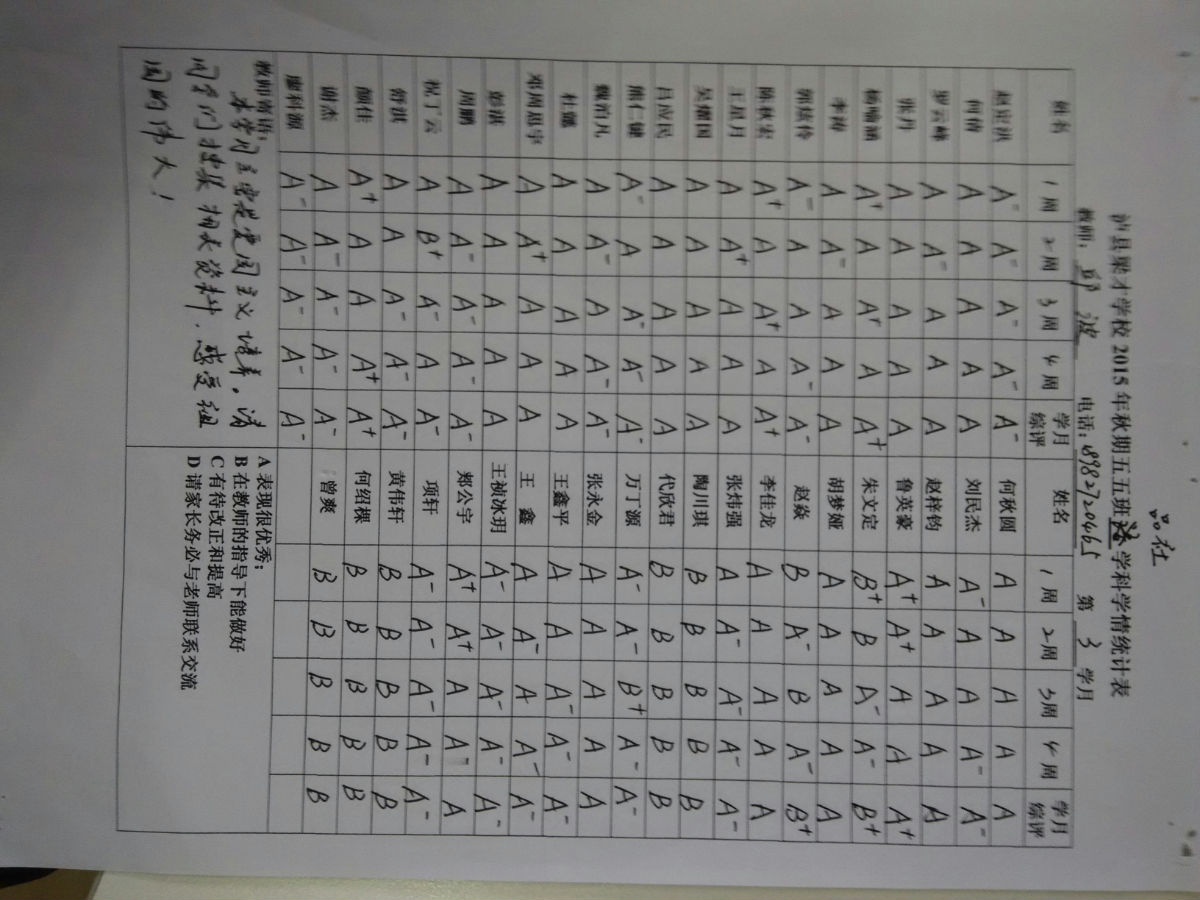 品社
泸县梁才学校 2015 年秋期五五班 学科学情统计表
教师: 波 电话: 第 3 学月
姓名 1周 2周 3周 4周 学月综评 姓名 1周 2周 3周 4周 学月综评
赵定洪 A- A- A- A- A- 何秋圆 A A A A A
何倩 A A A A A 刘民杰 A- A A A- A-
罗云峰 A A- A A A 赵梓钧 A A A A A
张丹 A A A A A 鲁英豪 A+ A+ A A A+
杨喻涵 A+ A A+ A A+ 朱文定 B+ B A- A- B+
李涛 A A- A A A 胡梦娅 A A A A A
郭炫伶 A- A A A- A- 赵焱 B A- B A- B+
陈秋宏 A+ A A+ A A+ 李佳龙 A A A A A
王星月 A A+ A A A 张炜强 A A- A- A- A-
吴熠国 A A A A A 陶川琪 B B B B B
吕应民 A A A A A 代欣君 B B B B B
熊仁键 A- A A- A- A- 万丁源 A- A- B+ A- A-
魏治凡 A A- A A- A- 张永金 A A A A A
杜勰 A A A A A 王鑫平 A A A- A- A-
邓周思宇 A A+ A A A 王鑫 A A- A A- A-
彭湛 A A A A A 王祯冰玥 A- A- A- A- A-
周鹏 A- A- A- A- A- 郏公宇 A+ A+ A A- A
祝丁云 A B+ A- A A- 项轩 A- A- A- A- A-
舒淇 A A A- A- A- 黄伟轩 B B B B B
颜佳 A+ A A A+ A+ 何绍棵 B B B B B
谢杰 A- A- A- A- A- 曾爽 B B B B B
廖科源 A- A- A- A- A-
教师寄语:
本学月主要是爱国主义培养,请
同学们搜集相关资料,感受祖
国的伟大!
A 表现很优秀;
B 在教师的指导下能做好
C 有待改正和提高
D 请家长务必与老师联系交流